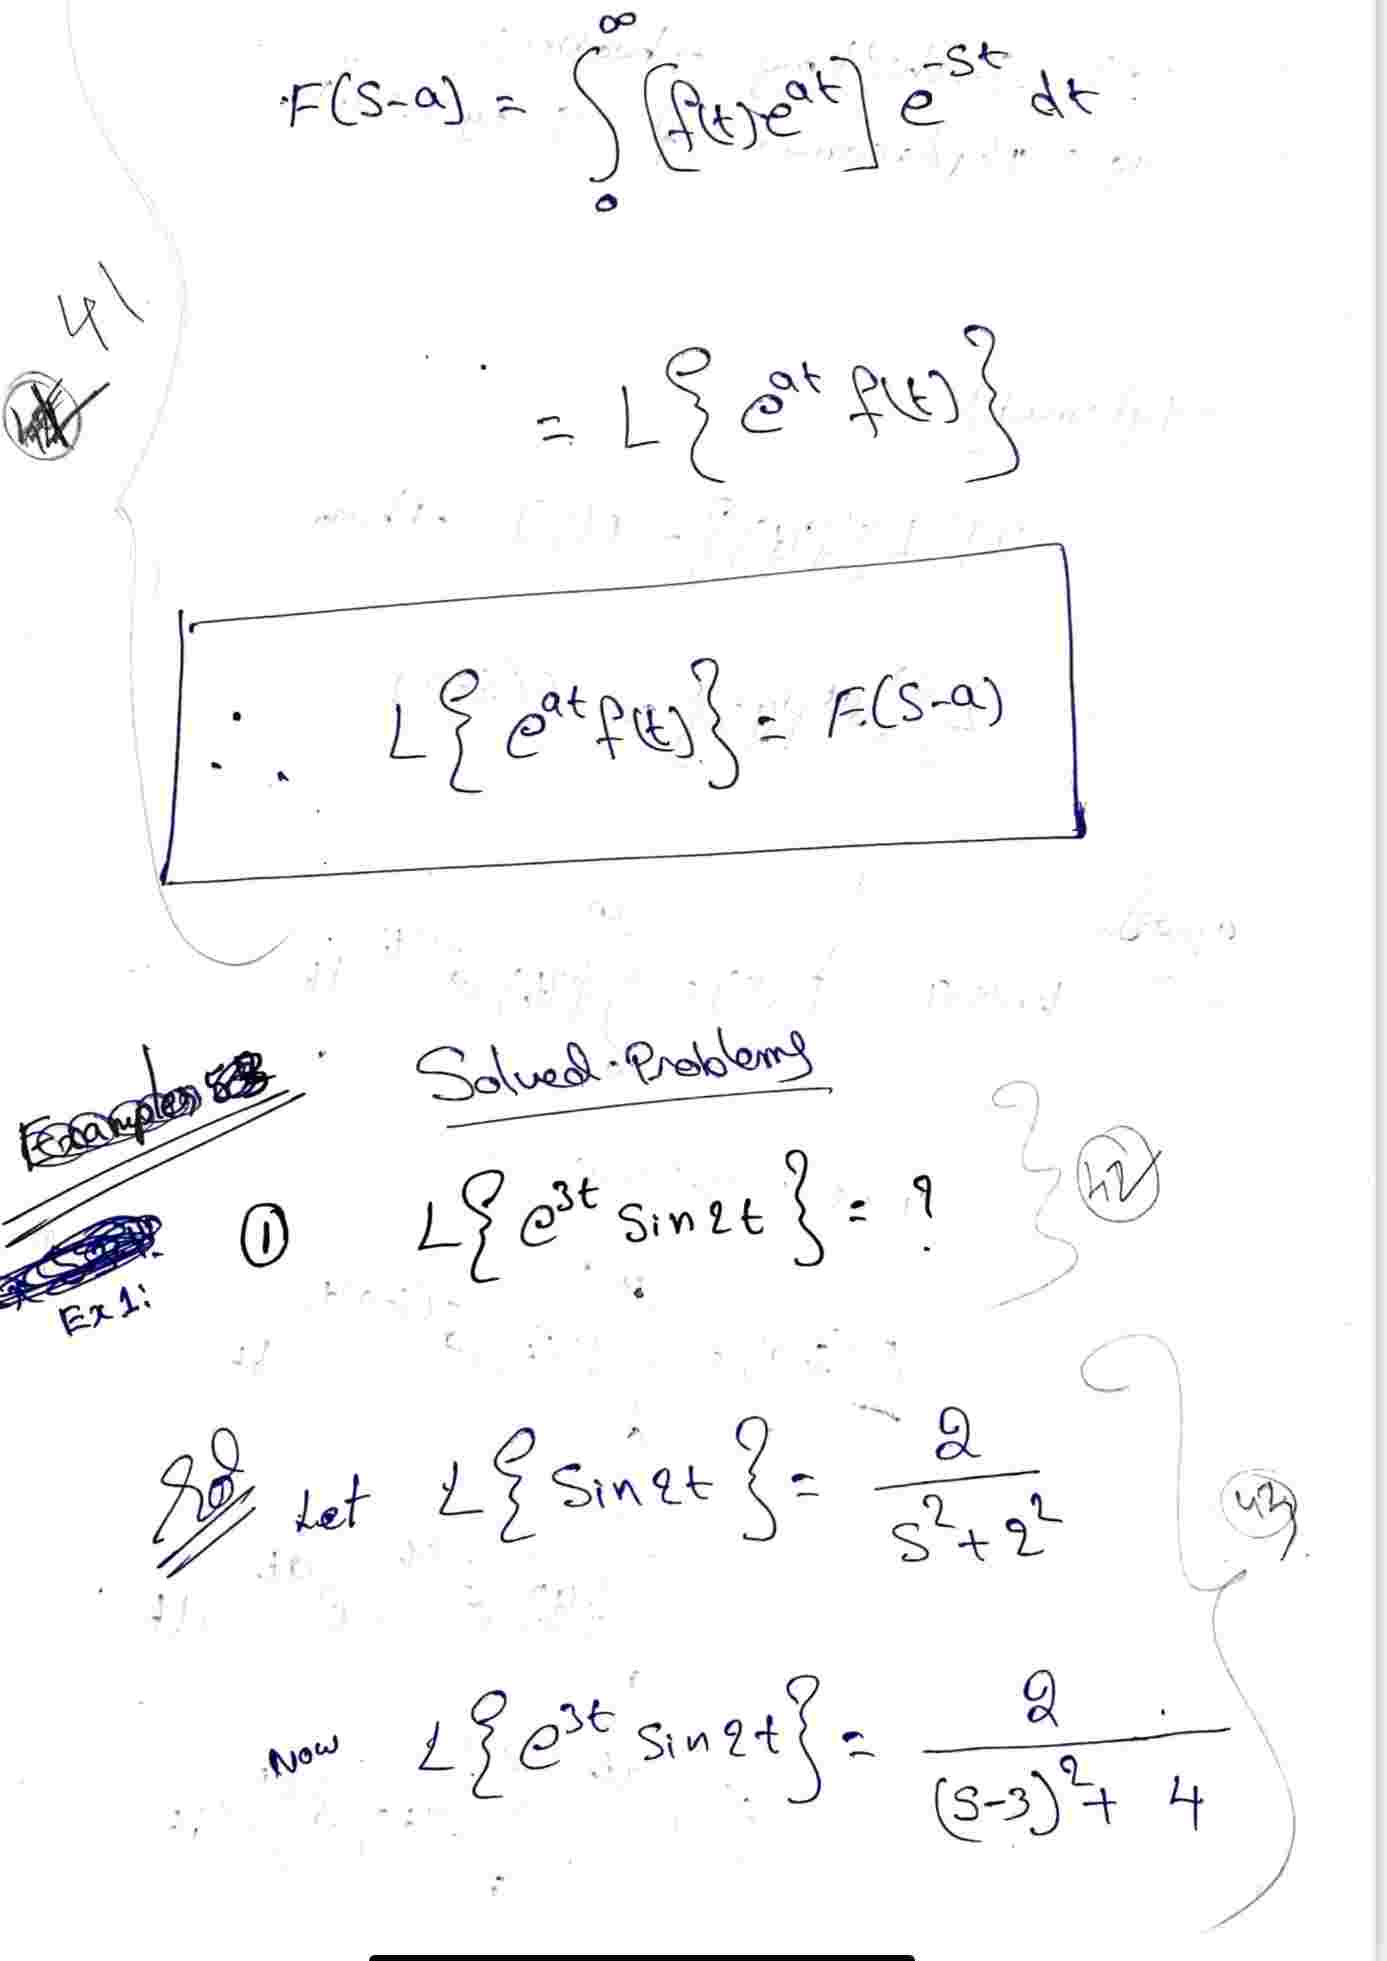 F(S-a) = ∫₀^∞ [f(t)e^{at}] e^{-st} dt
41
= L{e^{at} f(t)}
∴ L{e^{at} f(t)} = F(S-a)
Examples
Solved Problems
① L{e^{3t} Sin2t} = ?
42
Ex1:
Sol Let L{Sin2t} = 2/(S²+2²)
43
Now L{e^{3t} Sin2t} = 2/((S-3)²+4)